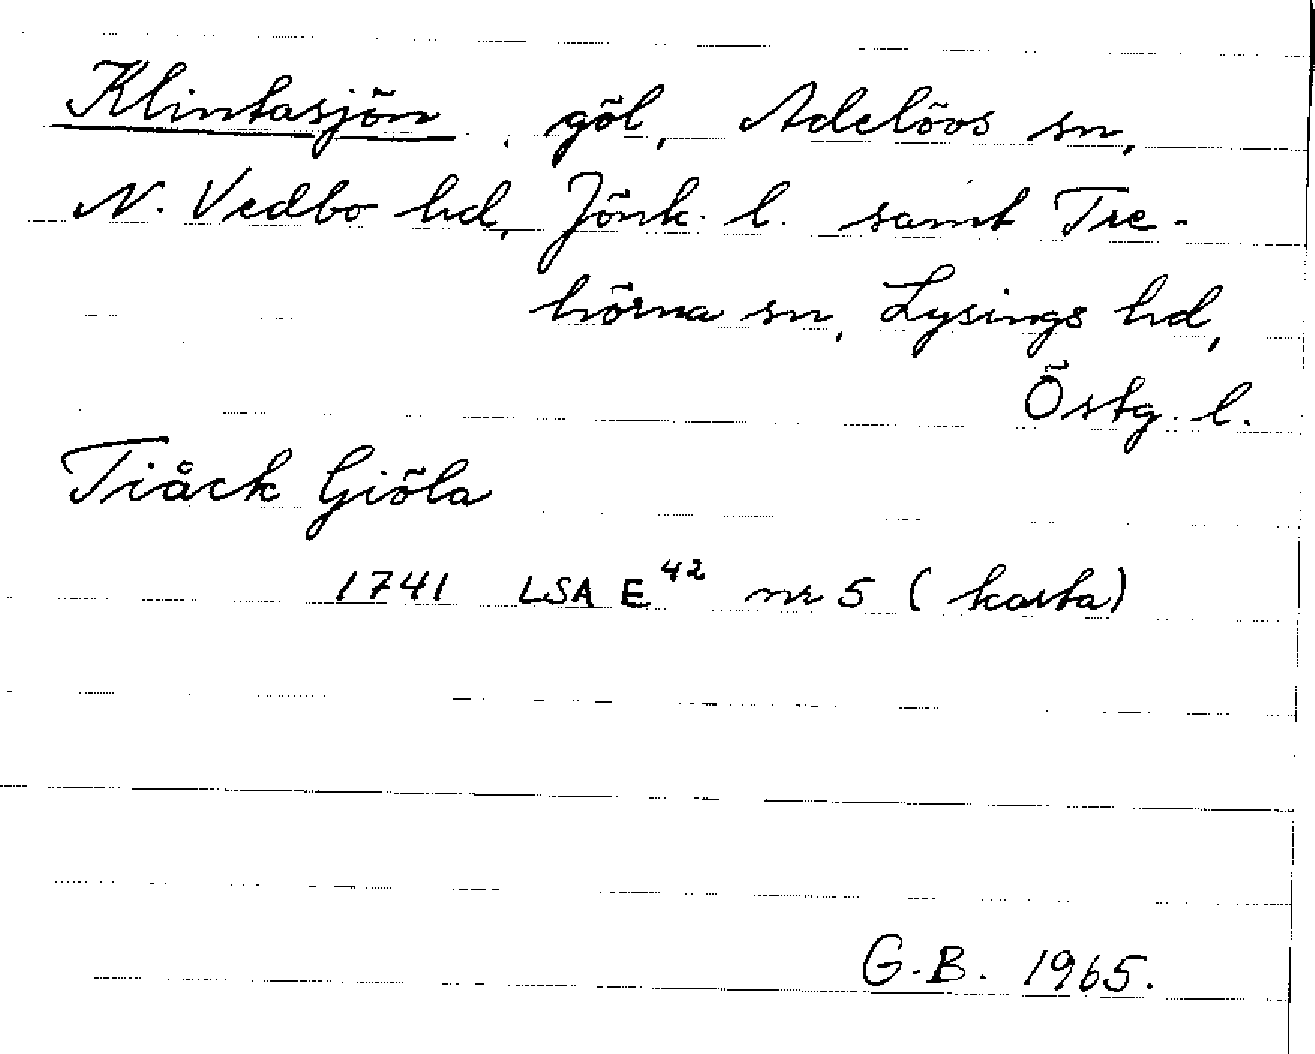 Klintasjön, göl, Adelövs sn,
N. Vedbo hd, Jönk. l. samt Tre-
hörna sn, Lysings hd,
Östg. l.
Tiåck Giöla
1741 LSA E 42 nr 5 (karta)
G.B. 1965.